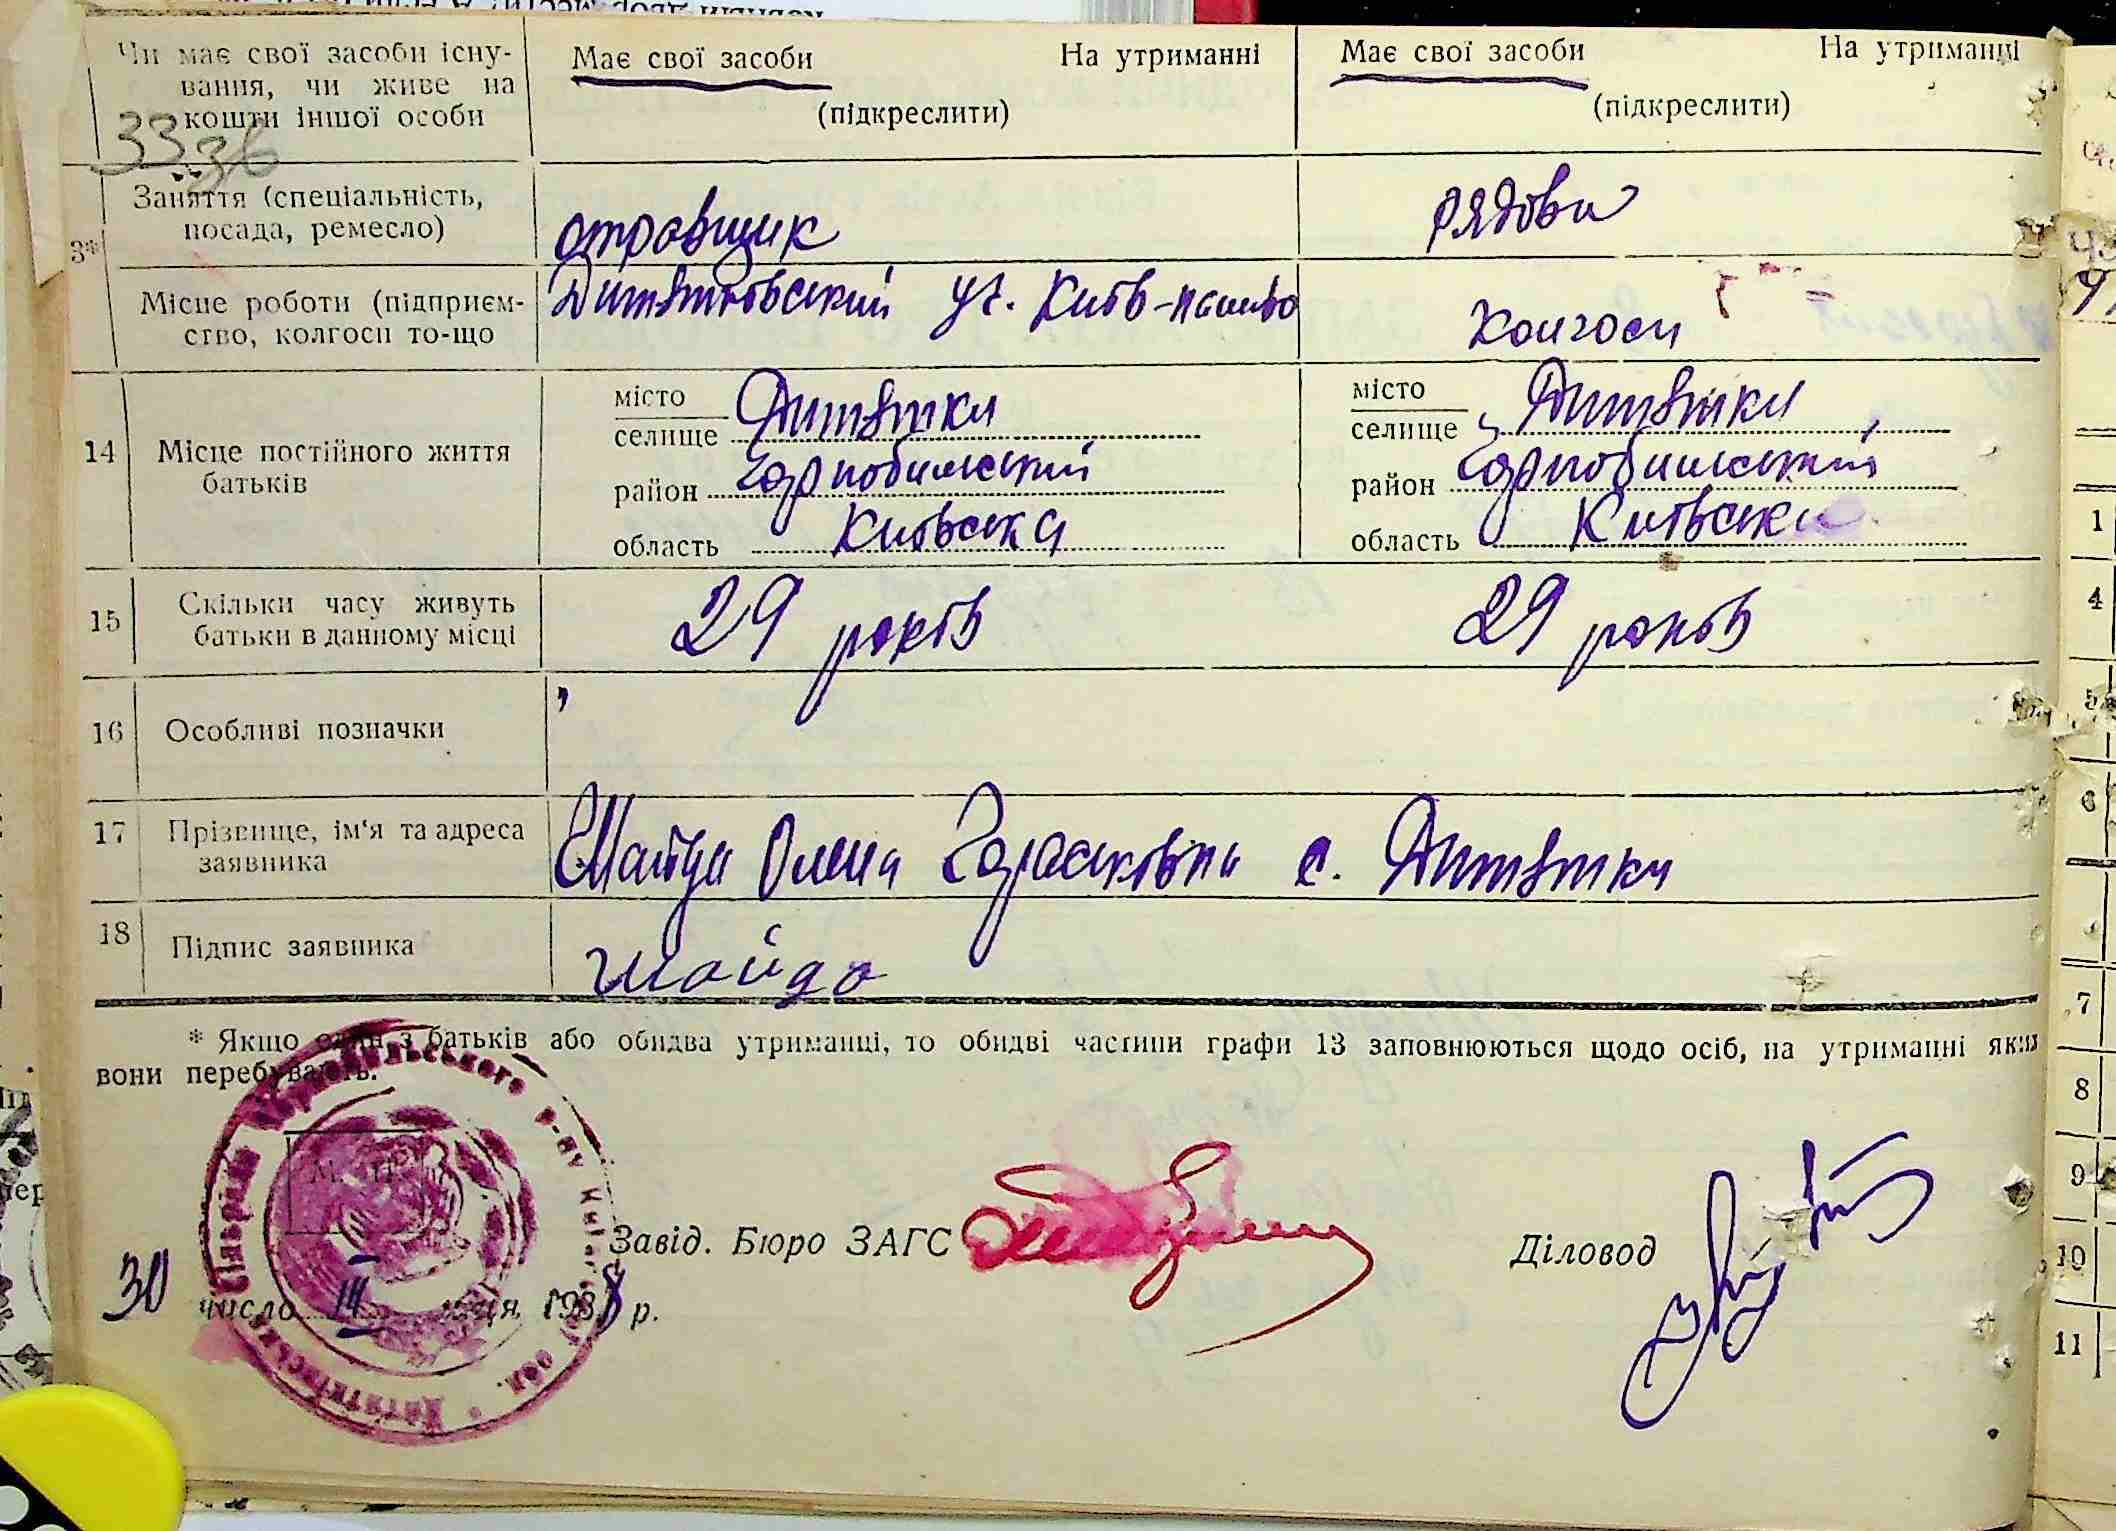 Чи має свої засоби існу-
вання, чи живе на
кошти іншої особи
Має свої засоби На утриманні
(підкреслити)
Має свої засоби На утриманці
(підкреслити)
33 36
3*
Заняття (спеціальність,
посада, ремесло)
отровщик
рядова
Місце роботи (підприєм-
ство, колгосп то-що
Дитятковский уч.
Колгосп
14
Місце постійного життя
батьків
місто
селище Дитятки
район Чорнобильский
область Київська
місто
селище Дитятки
район Чорнобильский
область Київська
15
Скільки часу живуть
батьки в данному місці
29 років
29 років
16
Особливі позначки
17
Прізвище, ім‘я та адреса
заявника
Шайда Олена Тарасковна с. Дитятки
18
Підпис заявника
Шайда
* Якщо один з батьків або обидва утриманці, то обидві частини графи 13 заповнюються щодо осіб, на утриманні яких
вони перебувають.
М. П.
Завід. Бюро ЗАГС
Діловод
30 число III 1938 р.
1
4
5
6
7
8
9
10
11